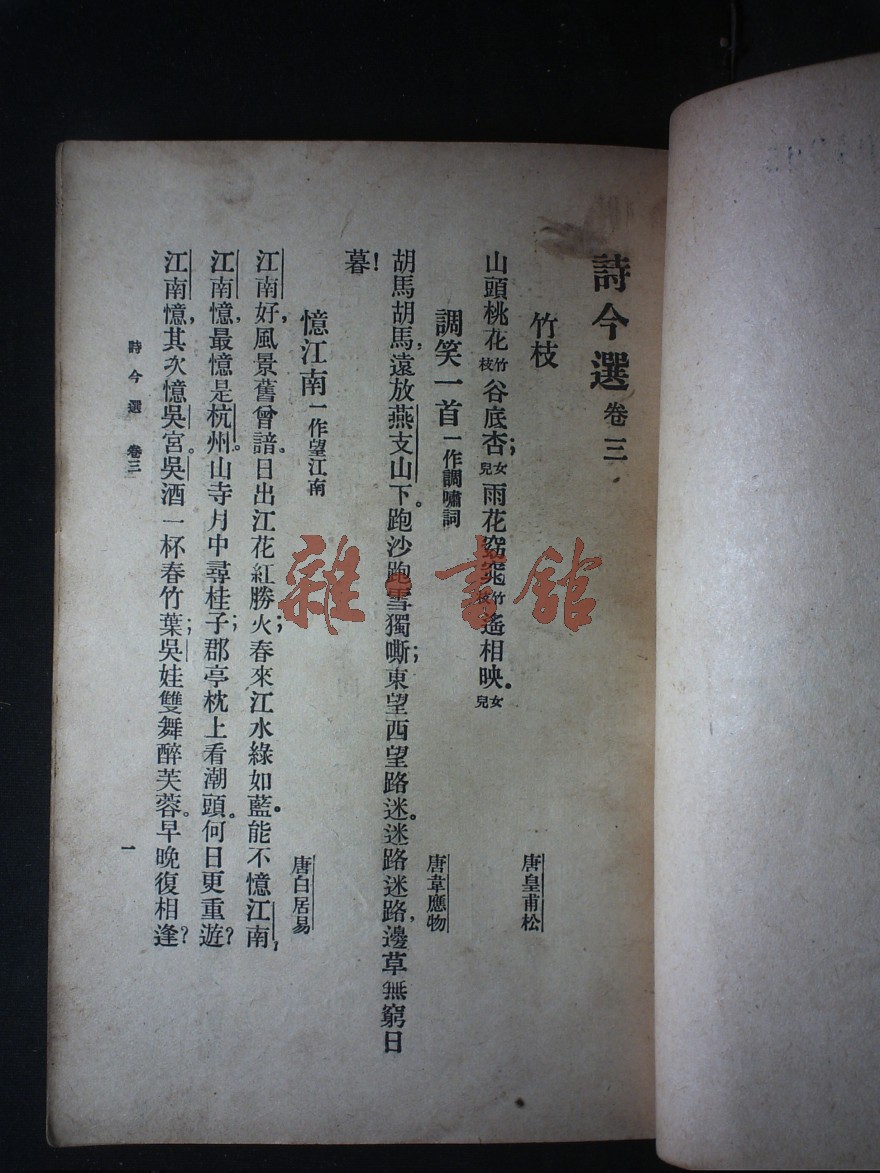 詩今選 卷三
竹枝
唐皇甫松
山頭桃花竹枝谷底杏;女兒雨花窈窕竹枝遙相映。女兒
調笑一首一作調嘯詞
唐韋應物
胡馬胡馬,遠放燕支山下。跑沙跑雪獨嘶;東望西望路迷。迷路迷路,邊草無窮日
暮!
憶江南一作望江南
唐白居易
江南好,風景舊曾諳。日出江花紅勝火;春來江水綠如藍。能不憶江南,
江南憶,最憶是杭州。山寺月中尋桂子;郡亭枕上看潮頭。何日更重遊?
江南憶,其次憶吳宮。吳酒一杯春竹葉;吳娃雙舞醉芙蓉。早晚復相逢?
詩今選 卷三
一
雜·書館